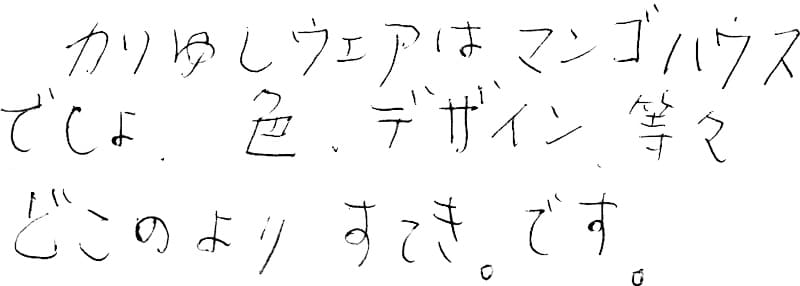 かりゆしウェアはマンゴハウス
でしょ、色、デザイン、等々
どこのよりすてき。です。